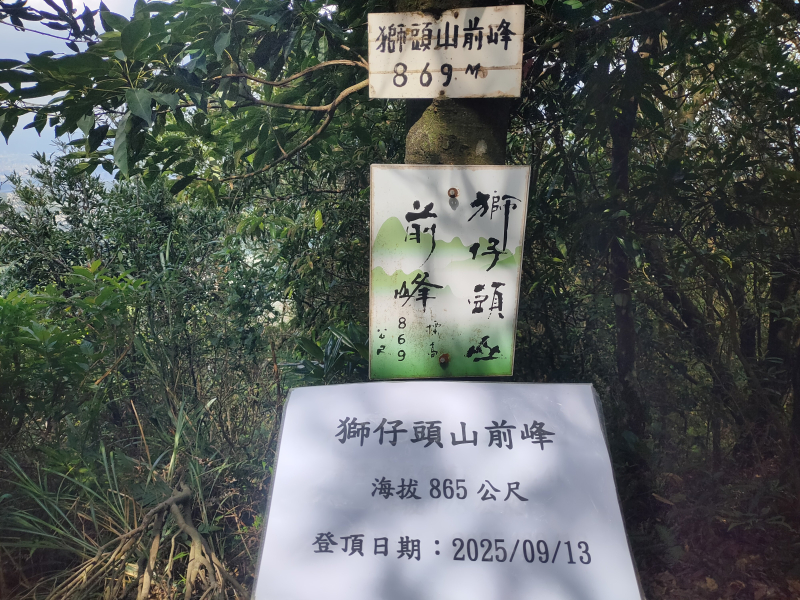 獅頭山前峰
869M
獅仔頭山
前峰
標高
869
公尺
獅仔頭山前峰
海拔 865 公尺
登頂日期：2025/09/13